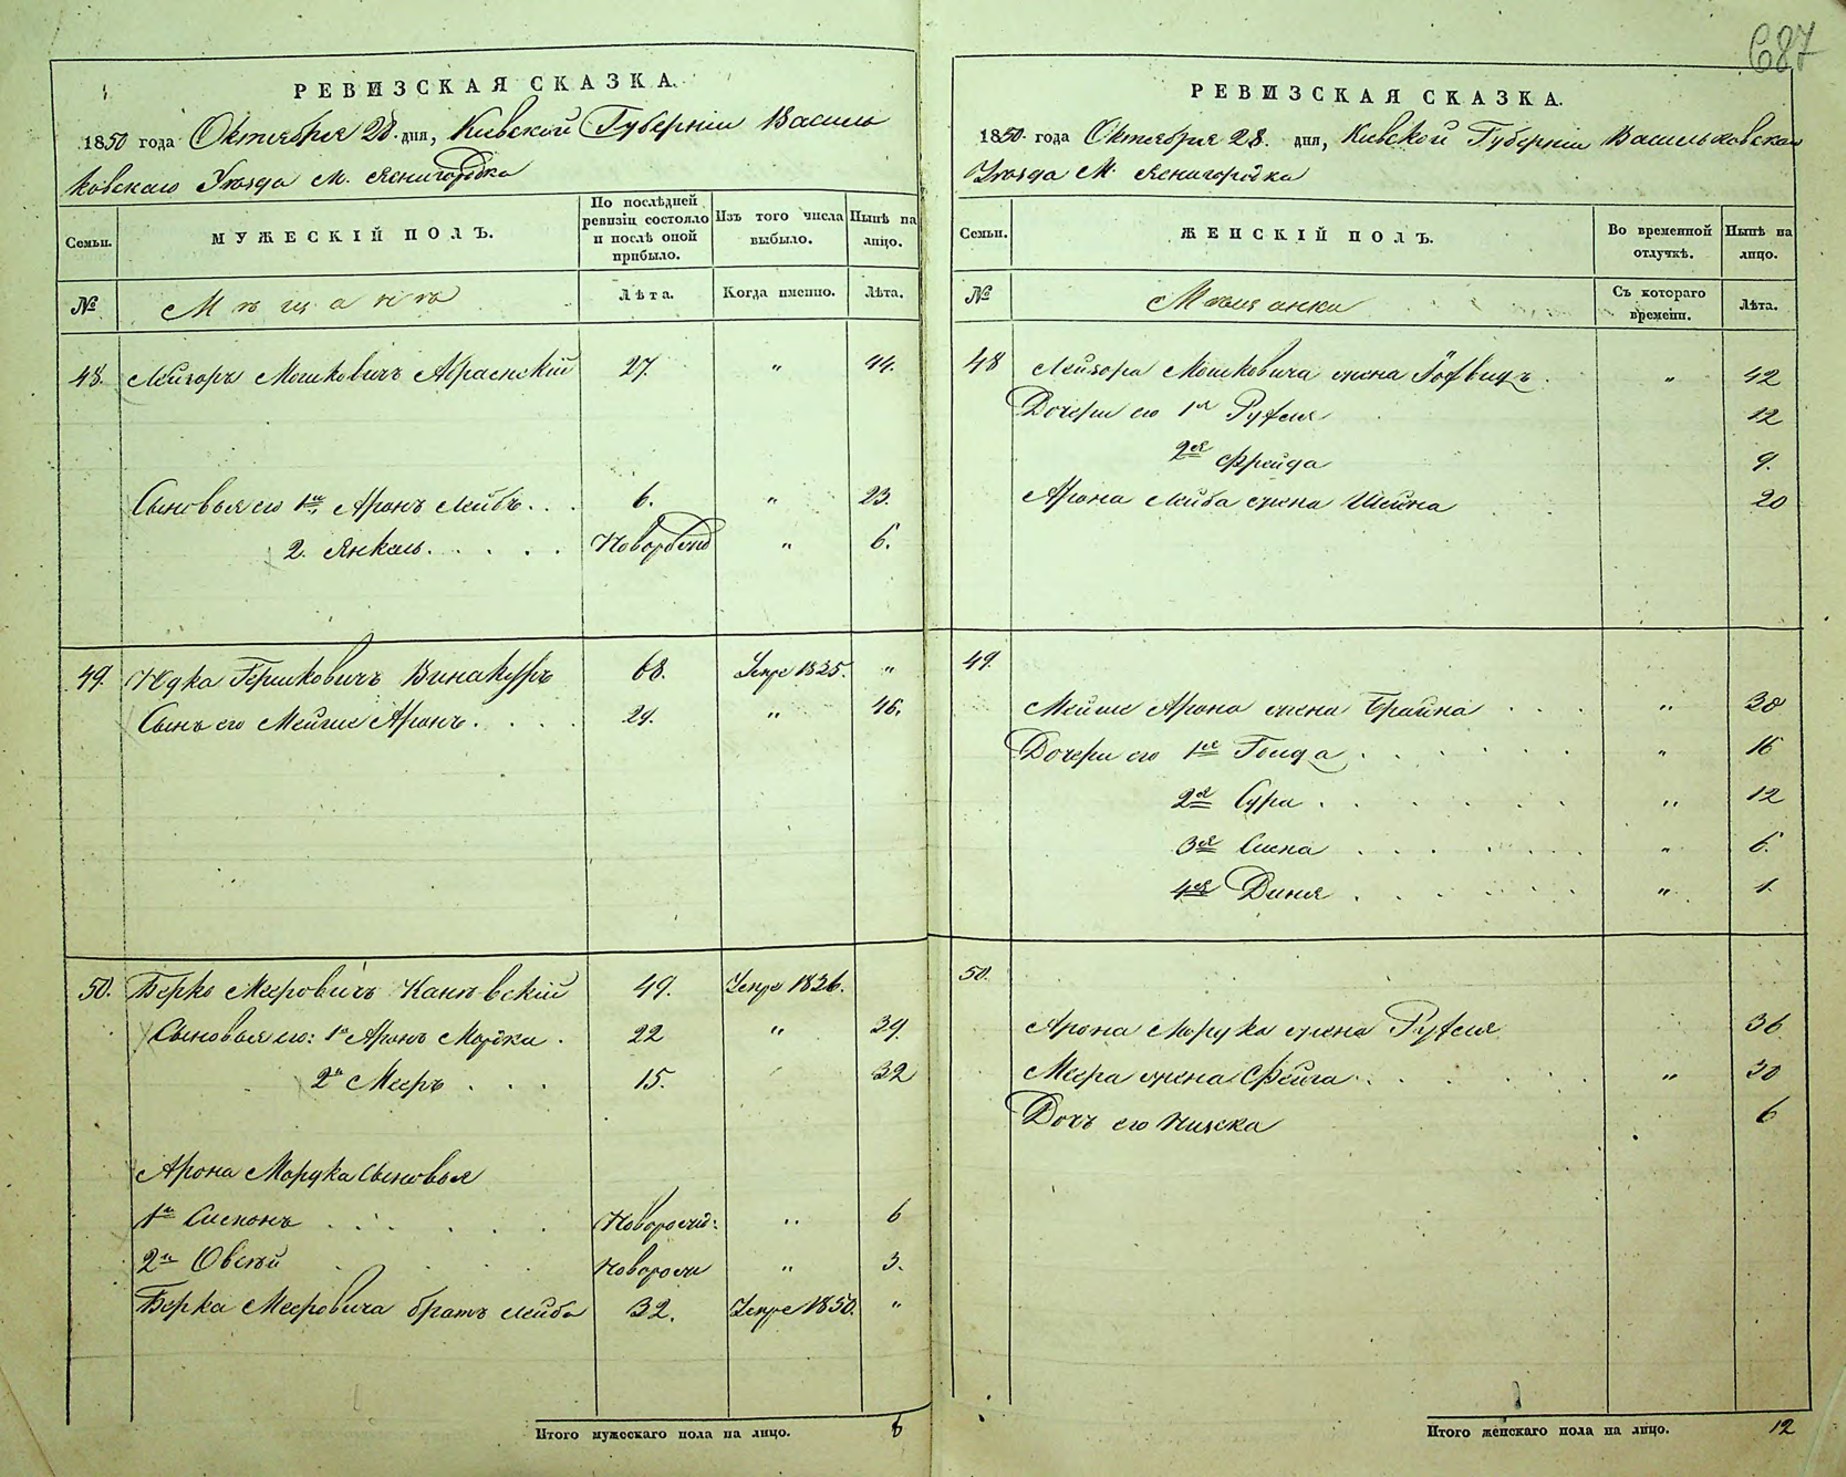 687
РЕВИЗСКАЯ СКАЗКА.
1850 года Октября 28. дня, Киевской Губерніи Василь
ковскаго Уезда м. Ясногородка
Семьи.
МУЖЕСКІЙ ПОЛЪ.
По послѣдней ревизіи состояло и послѣ оной прибыло.
Изъ того числа выбыло.
Нынѣ на лицо.
№
Мѣщанъ
Лѣта.
Когда именно.
Лѣта.
48. Лейзоръ Мошковичъ Абраенскій 27. " 44.
Сыновья его 1й Аронъ Лейбъ . . . 6. " 23.
2. Янкель . . . . . Новорожд " 6.
49. Юдка Гершковичъ Винакуръ 68. Умре 1835. "
Сынъ его Мейше Аронъ . . . . 29. " 46.
50. Берко Мееровичъ Каневскій 49. Умре 1836.
Сыновья его: 1й Аронъ Мордка . 22 " 39
2й Мееръ . . . 15. 32
Арона Мордка сыновья
1й Симонъ . . . . . . Новорожд: " 6
2й Овсѣй . . . . Новорож " 3.
Берка Мееровича братъ Лейба 32. Умре 1850. "
Итого мужескаго пола на лицо. 6
РЕВИЗСКАЯ СКАЗКА.
1850 года Октября 28. дня, Киевской Губерніи Васильковскаго
Уезда м. Ясногородка
Семьи.
ЖЕНСКІЙ ПОЛЪ.
Во временной отлучкѣ.
Нынѣ на лицо.
№
Мѣщанки
Съ котораго времени.
Лѣта.
48 Лейзора Мошковича жена . " 42
Дочери его 1я Рухля 12
2я Фрейда 9.
Арона Лейба жена Шейна 20
49.
Мейше Арона жена Брайна . . . " 38
Дочери его 1я Голда . . . . . . " 16
2я Сура . . . . . . " 12
3я Сиена . . . . . . " 6.
4я Диня . . . . . . " 1.
50.
Арона Мордка жена Рухля 36
Меера жена Фейга . . . . . " 30
Дочь его 6
Итого женскаго пола на лицо. 12